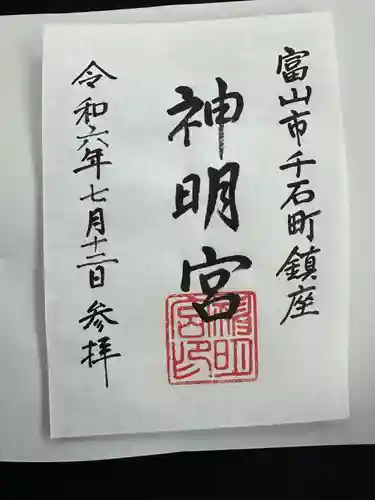 富山市千石町鎮座
神明宮
令和六年七月十二日 参拝
神明宮印